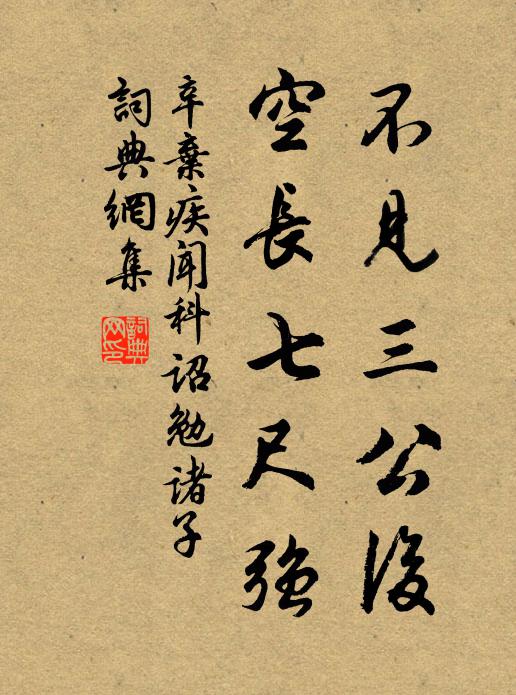 不見三公後
空長七尺強
辛棄疾闻科詔勉諸子
詞典網集
詞典网印